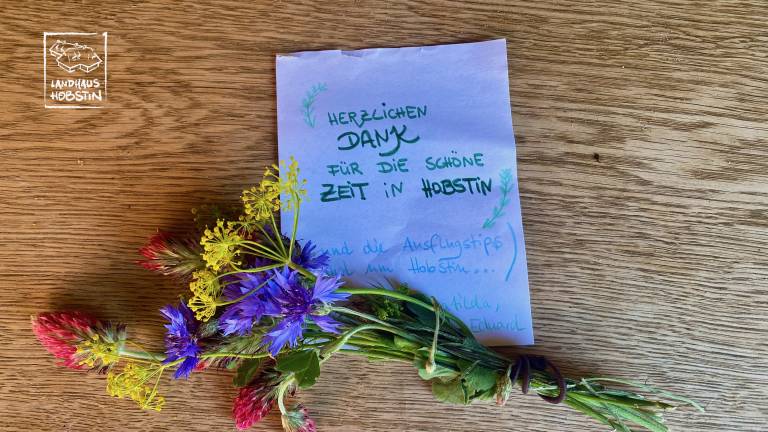 LANDHAUS
HOBSTIN
HERZLICHEN
DANK
FÜR DIE SCHÖNE
ZEIT IN HOBSTIN
und die Ausflugstips)
um Hobstin...
Eduard